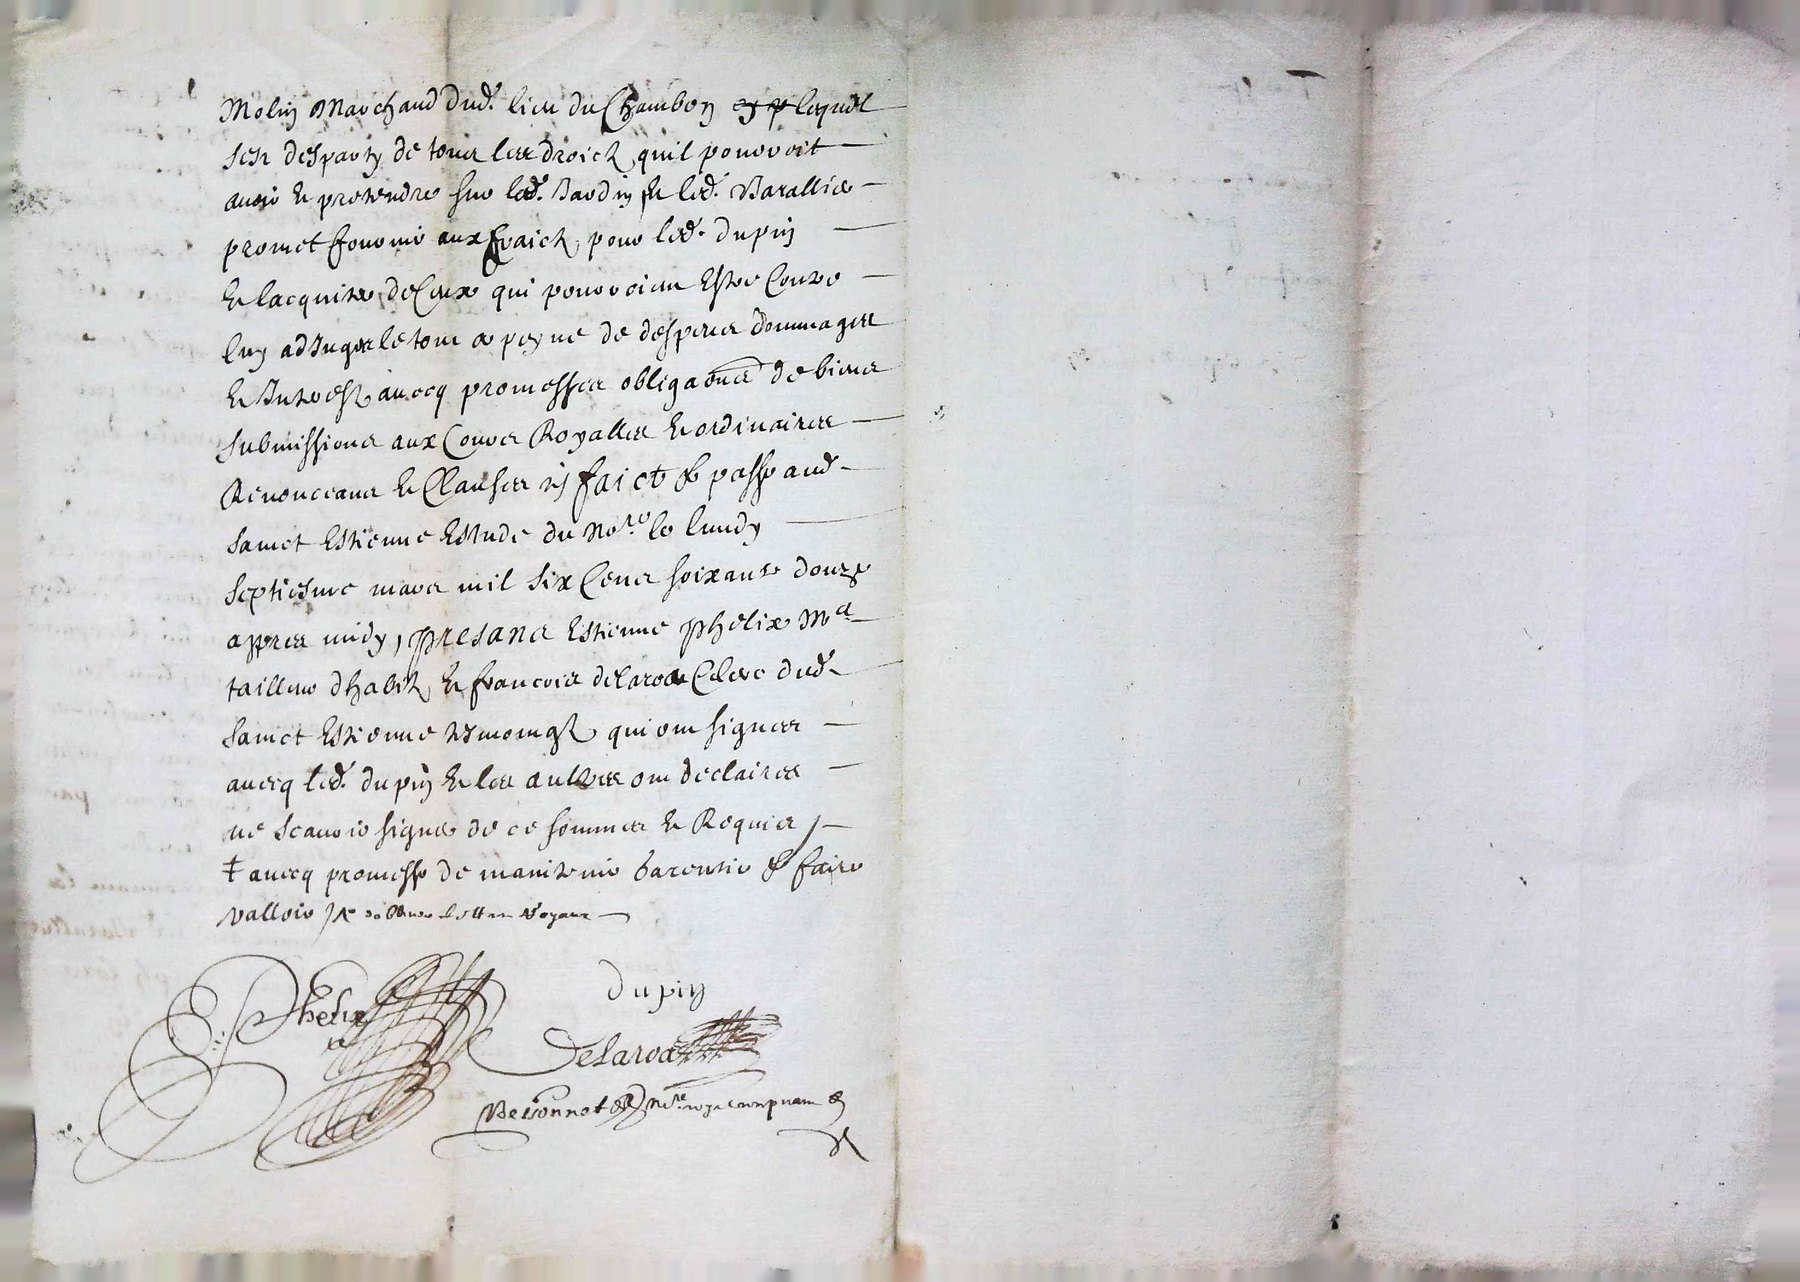 Molin Marchand dud. lieu du Chambon lequel
sest desparty de tous les droictz quil pouvoit
avoir et pretendre sur led. Bardin et led. Barallier
promet fournir aux fraictz pour led. dupin
et lacquiter de ceux qui pouroient Estre Contre
luy adjuges le tout a peyne de despens dommages
et Interestz avecq promesses obliga͠ons de biens
submissions aux Cours Royalles et ordinaires
Renonceans et Clauses faict & passe aud.
Sainct Estienne Estude du No.re le lundy
septiesme mars mil six Cens soixante douze
appres midy, presans Estienne phelix M.e
tailleur dhabitz et francois delaroa Clerc dud.
Sainct Estienne tesmoingz qui ont signes
avecq led. dupin et les aultres ont declaires
ne scavoir signer de ce sommes et Requis /
† avecq promesse de maintenir garentir & faire
valloir
E. Phelix
dupin
Delaroa
Bessonnet no.re royal